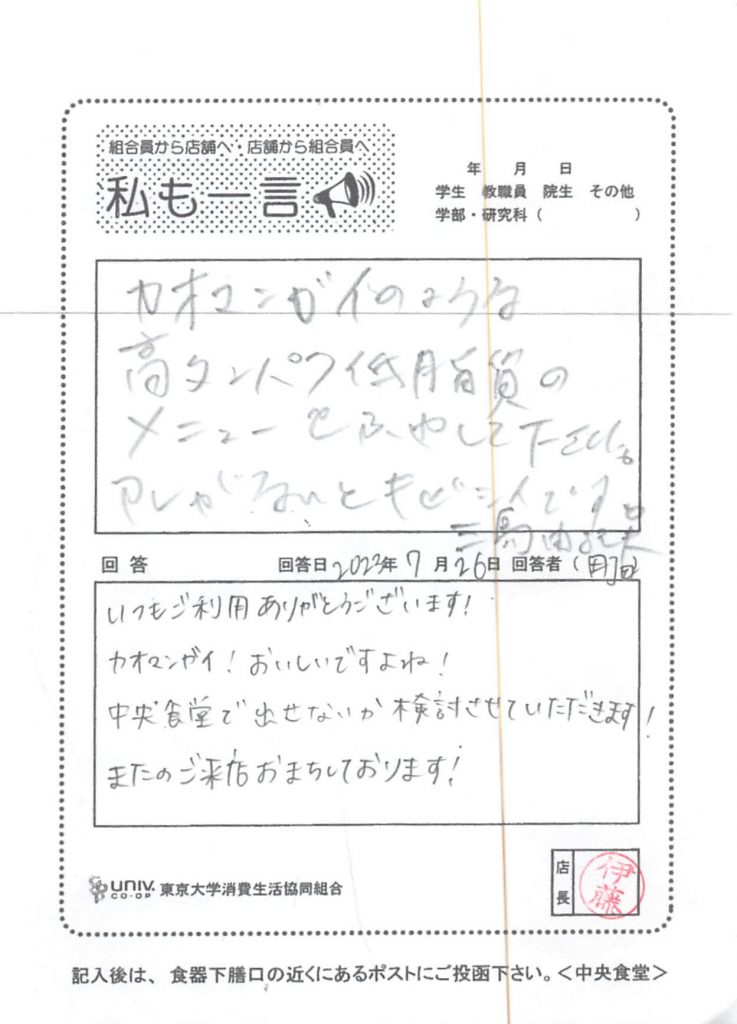 組合員から店舗へ・店舗から組合員へ
私も一言
年 月 日
学生 教職員 院生 その他
学部・研究科（ ）
カオマンガイのような
高タンパク低脂質の
メニューをふやして下さい。
アレがないとキビシイです
三島由紀夫
回答 回答日 2023年 7月 26日 回答者（ ）
いつもご利用ありがとうございます!
カオマンガイ! おいしいですよね!
中央食堂で出せないか検討させていただきます!
またのご来店おまちしております!
UNIV. CO-OP 東京大学消費生活協同組合
店長 伊藤
記入後は、食器下膳口の近くにあるポストにご投函下さい。＜中央食堂＞